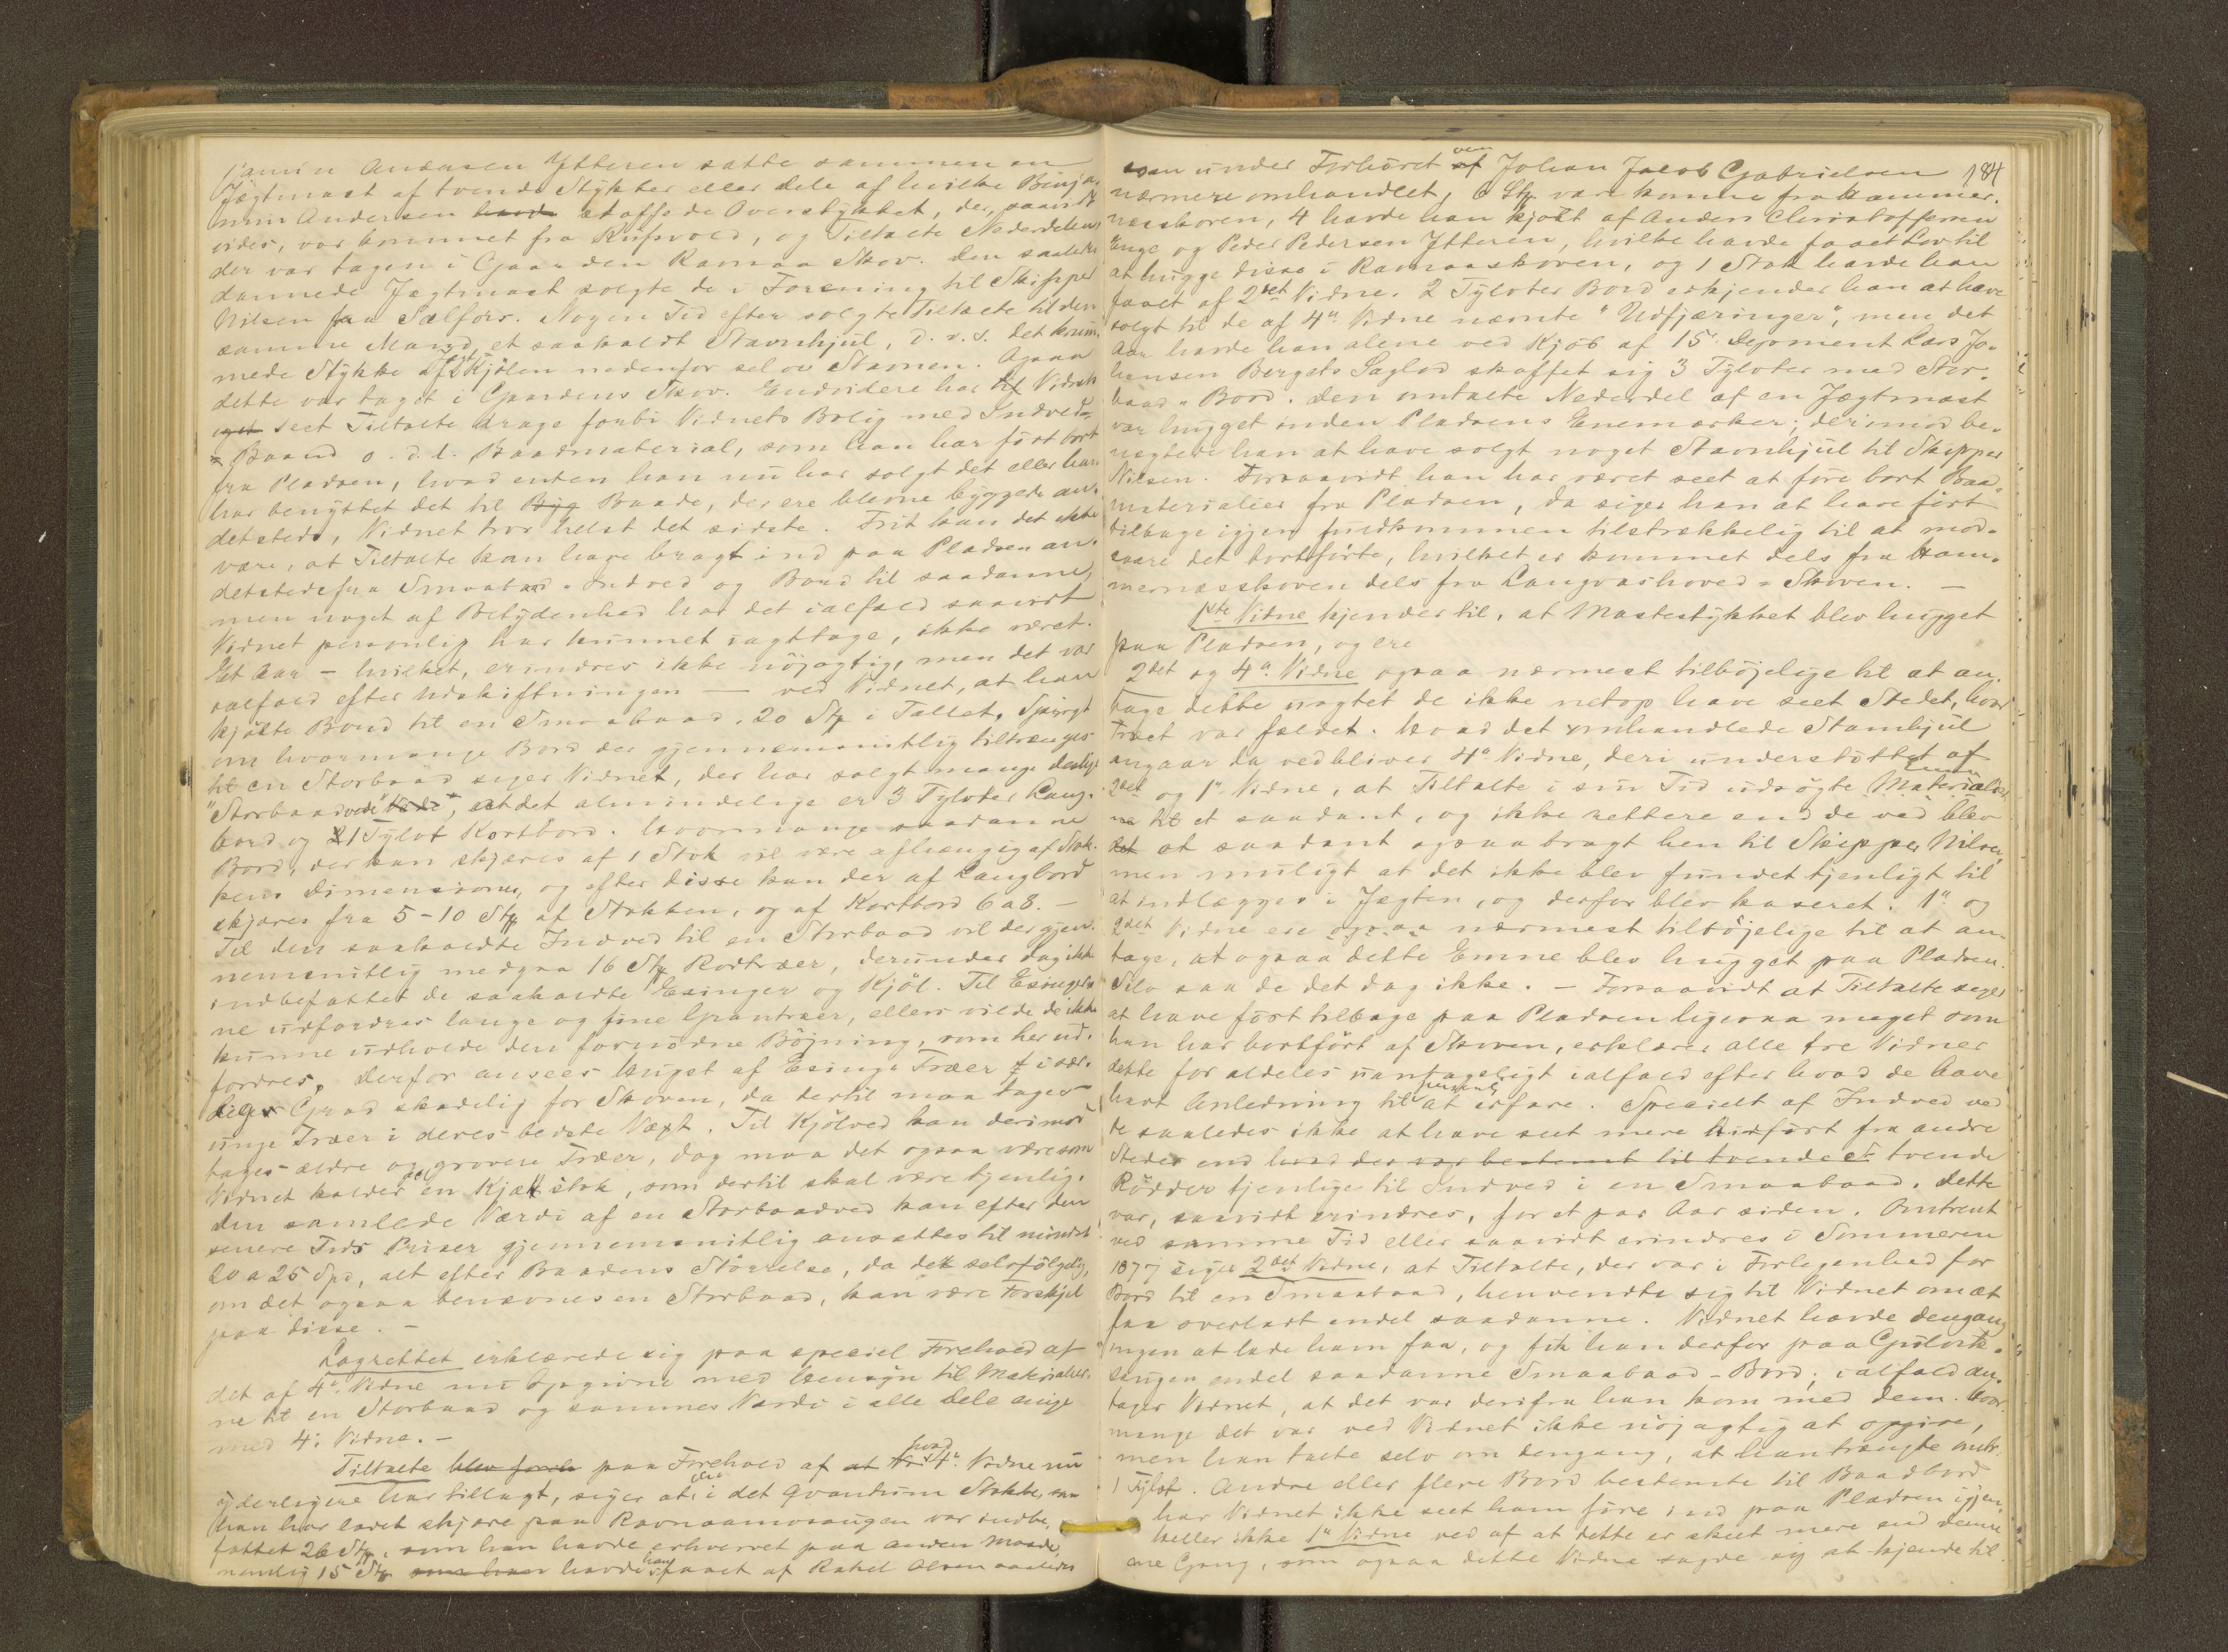 jamin Andersen Ytteren satte sammen en
Jægtmast af tvende Stykker eller Dele af hvilke Binja-
min Andersen havde skaffede Overstykket, der, saavidt
vides, var kommet fra Rusvold, og Tiltalte Nederdelen,
der var tagen i Gaarden Ramaa Skov. Den saaledes
dannede Jægtmast solgte de i Forening til Skipper
Nilsen fra Salfors. Nogen Tid efter solgte Tiltalte til den
samme Mand et saakaldt Stavnhjul, d. v. s. det krum-
mede Stykke af Kjölen nedenfor selve Stavnen. Ogsaa
dette var taget i Gaardens Skov. Endvidere har Vidnet
seet Tiltalte drage forbi Vidnets Bolig med Indved-
Baand o. d. l. Baadmaterial, som han har fört bort
fra Pladsen, hvad enten han nu har solgt det eller han
har benyttet det til Byg Baade, der ere blevne byggede an-
detsteds, Vidnet tror helst det sidste. Frit kan det ikke
være, at Tiltalte kan have bragt ind paa Pladsen an-
detstedsfra Smaabaad-Indved og Bord til saadanne,
men noget af Betydenhed har det ialfald saavidt
Vidnet personlig har kunnet iagttage, ikke været.
Et Aar – hvilket, erindres ikke nöjagtig, men det var
ialfald efter Udskiftningen – ved Vidnet, at han
kjöbte Bord til en Smaabaad, 20 Stk i Tallet. Spurgt
om hvormange Bord der gjennemsnitlig tiltrænges
til en Storbaad siger Vidnet, der har solgt mange deslige
"Storbaadved", at det almindelige er 3 Tylvter Lang-
bord og 1 Tylvt Kortbord. Hvormange saadanne
Bord, der kan skjæres af 1 Stok vil være afhængig af Stok-
kens Dimensioner, og efter disse kan der af Langbord
skjæres fra 5–10 Stk af Stokken, og af Kortbord 6 a 8. –
Til den saakaldte Indved til en Storbaad vil der gjen-
nemsnitlig medgaa 16 Stk Rodtræer, derunder dog ikke
indbefattet de saakaldte Esinger og Kjöl. Til Esinger-
ne udfordres lange og fine Grantræer, ellers vilde de ikke
kunne udholde den fornödne Böjning, som her ud-
fordres. Derfor ansees Hugst af Esinge Træer i sær-
deles Grad skadelig for Skoven, da dertil maa tages
unge Træer i deres bedste Væxt. Til Kjölved kan derimod
tages ældre og grovere Træer, dog maa det ogsaa være som
Vidnet kalder en Kjælstok, som dertil skal være tjenlig.
Den samlede Værdi af en Storbaadved kan efter den
senere Tids Priser gjennemsnitlig ansættes til mindst
20 a 25 Spd, alt efter Baadens Störrelse, da det selvfölgelig,
om det ogsaa benævnes en Storbaad, kan være Forskjel
paa disse. –
Lagrettet erklærede sig paa speciel Forehold af
det af 4de Vidne nu Opgivne med Hensyn til Materialier-
ne til en Storbaad og sammes Værdi i alle Dele enige
med 4de Vidne. –
Tiltalte blev foreh paa Forehold af hvad 4de Vidne nu
yderligere har tillagt, siger at i det Qvantum Stokke, som
han har ladet skjære paa Ravnaamosaugen var indbe-
fattet 26 Stk, som han havde erhvervet paa anden Maade,
nemlig 15 Stk som han havde han faaet af Rakel Olsen saaledes
184
som under Forhöret over Johan Jacob Gabrielsen
nærmere omhandlet, 6 Stk vare komne fra Hammer-
næsskoven, 4 havde han kjöbt af Anders Christoffersen
Enge og Peder Pedersen Ytteren, hvilke havde faaet Lov til
at hugge disse i Ravnaaskoven, og 1 Stok havde han
faaet af 2det Vidne. 2 Tylvter Bord erkjender han at have
solgt til de af 4de Vidne nævnte "Udfjæringer", men det
Aar havde han alene ved Kjöb af 15. Deponent Lars Jo-
hansen Bergets Saglod skaffet sig 3 Tylvter med Stor-
baad-Bord. Den omtalte Nederdel af en Jægtmast
var hugget inden Pladsens Enemærker; derimod be-
nægtede han at have solgt noget Stavnhjul til Skipper
Nilsen. Forsaavidt han har været seet at före bort Baad-
materialier fra Pladsen, da siger han at have fört
tilbage igjen fuldkommen tilstrækkelig til at mod-
svare det bortförte, hvilket er kommet dels fra Ham-
mernæsskoven dels fra Langvashoved-Skoven. –
1ste Vidne kjender til, at Mastestykket blev hugget
paa Pladsen, og ere
2det og 4de Vidne ogsaa nærmest tilböjelige til at an-
tage dette uagtet de ikke netop have seet Stedet, hvor
Træet var fældet. Hvad det omhandlede Stamhjul
angaar da vedbliver 4de Vidne, deri understöttet af
2det og 1ste Vidne, at Tiltalte i sin Tid udsögte Emne
til et saadant, og ikke rettere end de ved blev
et saadant ogsaa bragt hen til Skipper Nilsen,
men muligt at det ikke blev fundet tjenligt til
at indlægges i Jægten, og derfor blev kasseret. 1ste og
2det Vidne ere ogsaa nærmest tilböjelige til at an-
tage, at ogsaa dette Emne blev hugget paa Pladsen.
Selv saa de det dog ikke. – Forsaavidt at Tiltalte siger
at have fört tilbage paa Pladsen ligesaa meget som
han har bortfört af Skoven, erklærer alle tre Vidner
dette for aldeles uantageligt ialfald efter hvad de have
havt Anledning til at erfare. Specielt af Indved ved
de saaledes ikke at have seet mere hidfört fra andre
Steder end hvad der var bestemt til tvende et tvende
Rödder tjenlige til Indved i en Smaabaad. Dette
var, saavidt erindres, for et par Aar siden. Omtrent
ved samme Tid eller saavidt erindres i Sommeren
1877 siger 2det Vidne, at Tiltalte, der var i Forlegenhed for
Bord til en Smaabaad, henvendte sig til Vidnet om at
faa overladt endel saadanne. Vidnet havde dengang
ingen at lade ham faa, og fik han derfor paa Gulvik-
saugen endel saadanne Smaabaad-Bord; ialfald an-
tager Vidnet, at det var derifra han kom med dem. Hvor-
mange det var ved Vidnet ikke nöjagtig at opgive,
men han talte selv om dengang, at han trængte omtr.
1 Tylvt. Andre eller flere Bord bestemte til Baadbord
har Vidnet ikke seet ham före ind paa Pladsen igjen,
heller ikke 1ste Vidne ved af at dette er skeet mere end denne
ene Gang, som ogsaa dette Vidne sagde sig at kjende til